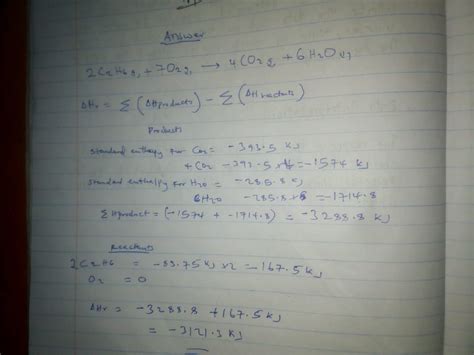 Answer
2C2H6g + 7O2g → 4CO2g + 6H2O(l)
ΔHr = Σ(ΔHproducts) - Σ(ΔHreactants)
Products
Standard enthalpy for CO2 = -393.5 KJ
4CO2 -393.5 x 4 = -1574 KJ
Standard enthalpy for H2O = -285.8
6H2O -285.8 x 6 = -1714.8
ΣHproduct = (-1574 + -1714.8) = -3288.8 KJ
Reactants
2C2H6 = -83.75 KJ x 2 = -167.5 KJ
O2 = 0
ΔHr = -3288.8 + 167.5 KJ
= -3121.3 KJ